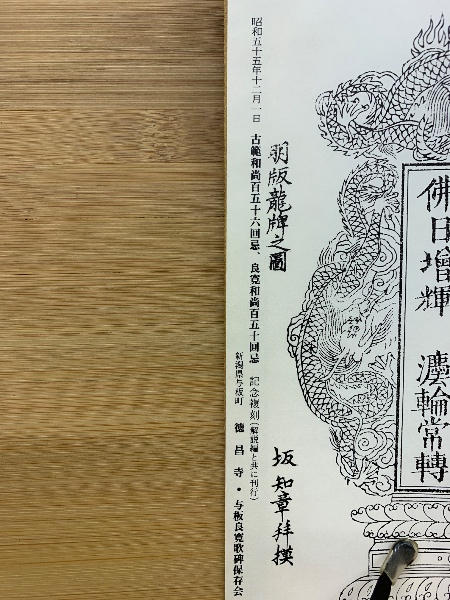 佛日増輝　灋輪常轉
明版龍牌之圖
坂知章拜撗
昭和五十五年十二月一日　古範和尚百五十六回忌、良寛和尚百五十回忌　記念複刻（解説編と共に刊行）
新潟県与板町　徳昌寺・与板良寛歌碑保存会